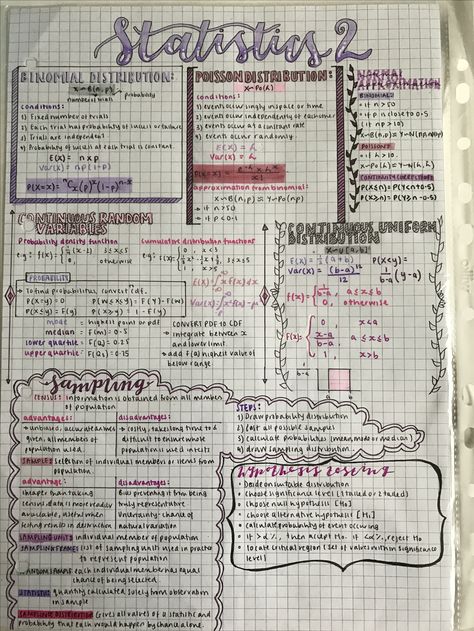 Statistics 2
BINOMIAL DISTRIBUTION:
X~B(n,p)
number of trials
probability
conditions:
1) Fixed number of trials
2) Each trial has probability of success or failure
3) Trials are independent
4) Probability of success at each trial is constant.
E(X) = n×p
Var(X) = np(1-p)
P(X=x) = nCx(p)^x(1-p)^n-x
POISSON DISTRIBUTION:
X~Po(λ)
conditions:
1) events occur singly in space or time
2) events occur independently of eachother
3) events occur at a constant rate
4) events occur randomly
E(X) = λ
Var(X) = λ
P(X=x) = e^-λ × λ^x / x!
approximation from binomial:
X~B(n,p) ≈ Y~Po(np)
→ if n>50
→ if p<0.1
NORMAL APPROXIMATION
BINOMIAL:
→ if n>50
→ if p is close to 0.5
→ if np>10
X~B(n,p) ≈ Y~N(np,npq)
POISSON:
→ if λ>10.
X~Po(λ) ≈ Y~N(λ,λ)
CONTINUITY CORRECTION:
P(X≤n) ≈ P(Y<n+0.5)
P(X≥n) ≈ P(Y>n-0.5)
CONTINUOUS RANDOM
VARIABLES
Probability density function
0, otherwise
cumulative distribution functions
PROBABILITY
→ to find probabilities, convert cdf.
P(X=y) = 0
P(W≤X≤Y) = F(Y)-F(W)
P(X≤y) = F(y)
P(X>y) = 1-F(y)
mode = highest point of pdf
median = F(m) = 0.5
lower quartile: F(Q1) = 0.25
upper quartile: F(Q3) = 0.75
CONVERT PDF TO CDF
→ integrate between x
and lower limit.
→ add F(x) highest value of
below range
CONTINUOUS UNIFORM
DISTRIBUTION
X~U[a,b]
E(X) = ½(a+b)
Var(X) = (b-a)²/12
P(X<y) = 1/(b-a) (y-a)
f(x) = { 1/(b-a), a≤x≤b
0, otherwise
F(x) = { 0, x<a
(x-a)/(b-a), a≤x≤b
1, x>b
Sampling
CENSUS: Information is obtained from all member
of population
advantages:
→ unbiased, accurate
given all members of
population used.
disadvantages:
→ costly, takes long time to do
difficult to ensure whole
population is used in tests
SAMPLE: selection of individual members or items from
population.
advantage:
cheaper than taking
census, data is more readily
available, useful when
testing results in destruction
disadvantages:
Bias preventing it from being
truly representative
Uncertainty: chance of
natural variation
SAMPLING UNITS: individual member of population
SAMPLING FRAME: list of sampling units used in practice
to represent population
RANDOM SAMPLE: each individual member has equal
chance of being selected.
STATISTIC: quantity calculated solely from observation
in sample
SAMPLING DISTRIBUTION: gives all values of a statistic and
probability that each would happen by chance alone.
STEPS:
1) Draw probability distribution
2) List all possible samples
3) calculate probabilities (mean, mode or median)
4) draw sampling distribution.
Hypothesis testing
- Decide on suitable distribution
- choose significance level (1 tailed or 2 tailed)
- choose null hypothesis [H0]
- choose alternative hypothesis [H1]
- calculate probability of event occuring
- if >α%, then accept H0. if <α%, reject H0
- locate critical region (set of values within significance
level)